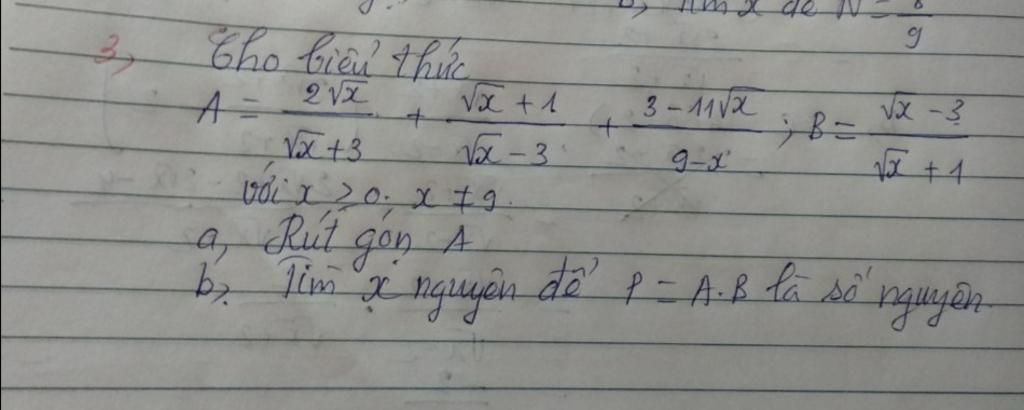 b, Tìm x để N = 8/9
3, Cho biểu thức
A = 2√x/(√x+3) + (√x+1)/(√x-3) + (3-11√x)/(9-x); B = (√x-3)/(√x+1)
với x ≥ 0; x ≠ 9.
a, Rút gọn A
b, Tìm x nguyên để P = A.B là số nguyên.